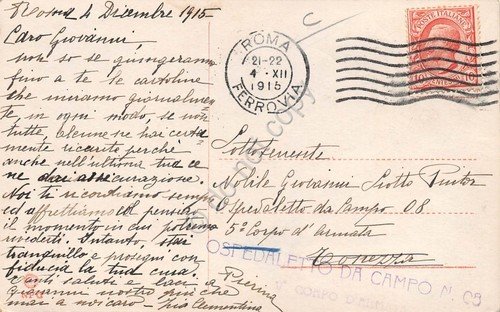 Roma 4 Dicembre 1915
Caro Giovanni,
non so se giungeranno
fino a te le cartoline
che inviamo giornalmen
te, in ogni modo, se non
tutte, alcune ne hai certa
mente ricevute perchè
anche nell'ultima tua ce
ne dai assicurazione.
Noi ti ricordiamo sempre
ed affrettiamo col pensiero
il momento in cui potremo
rivederti. Intanto, stai
tranquillo e prosegui con
fiducia la tua cura.
Tanti saluti e baci a
Giovanni nostro più che
mai a noi caro - Zia Clementina
Pierina
ROMA
21-22
4 - XII
1915
FERROVIA
POSTE ITALIANE
10
Sottotenente
Nobile Giovanni Siotto Pintor
Ospedaletto da Campo 08
5° Corpo d'armata
Tonezza
OSPEDALETTO DA CAMPO N. 08
V CORPO D'ARMATA